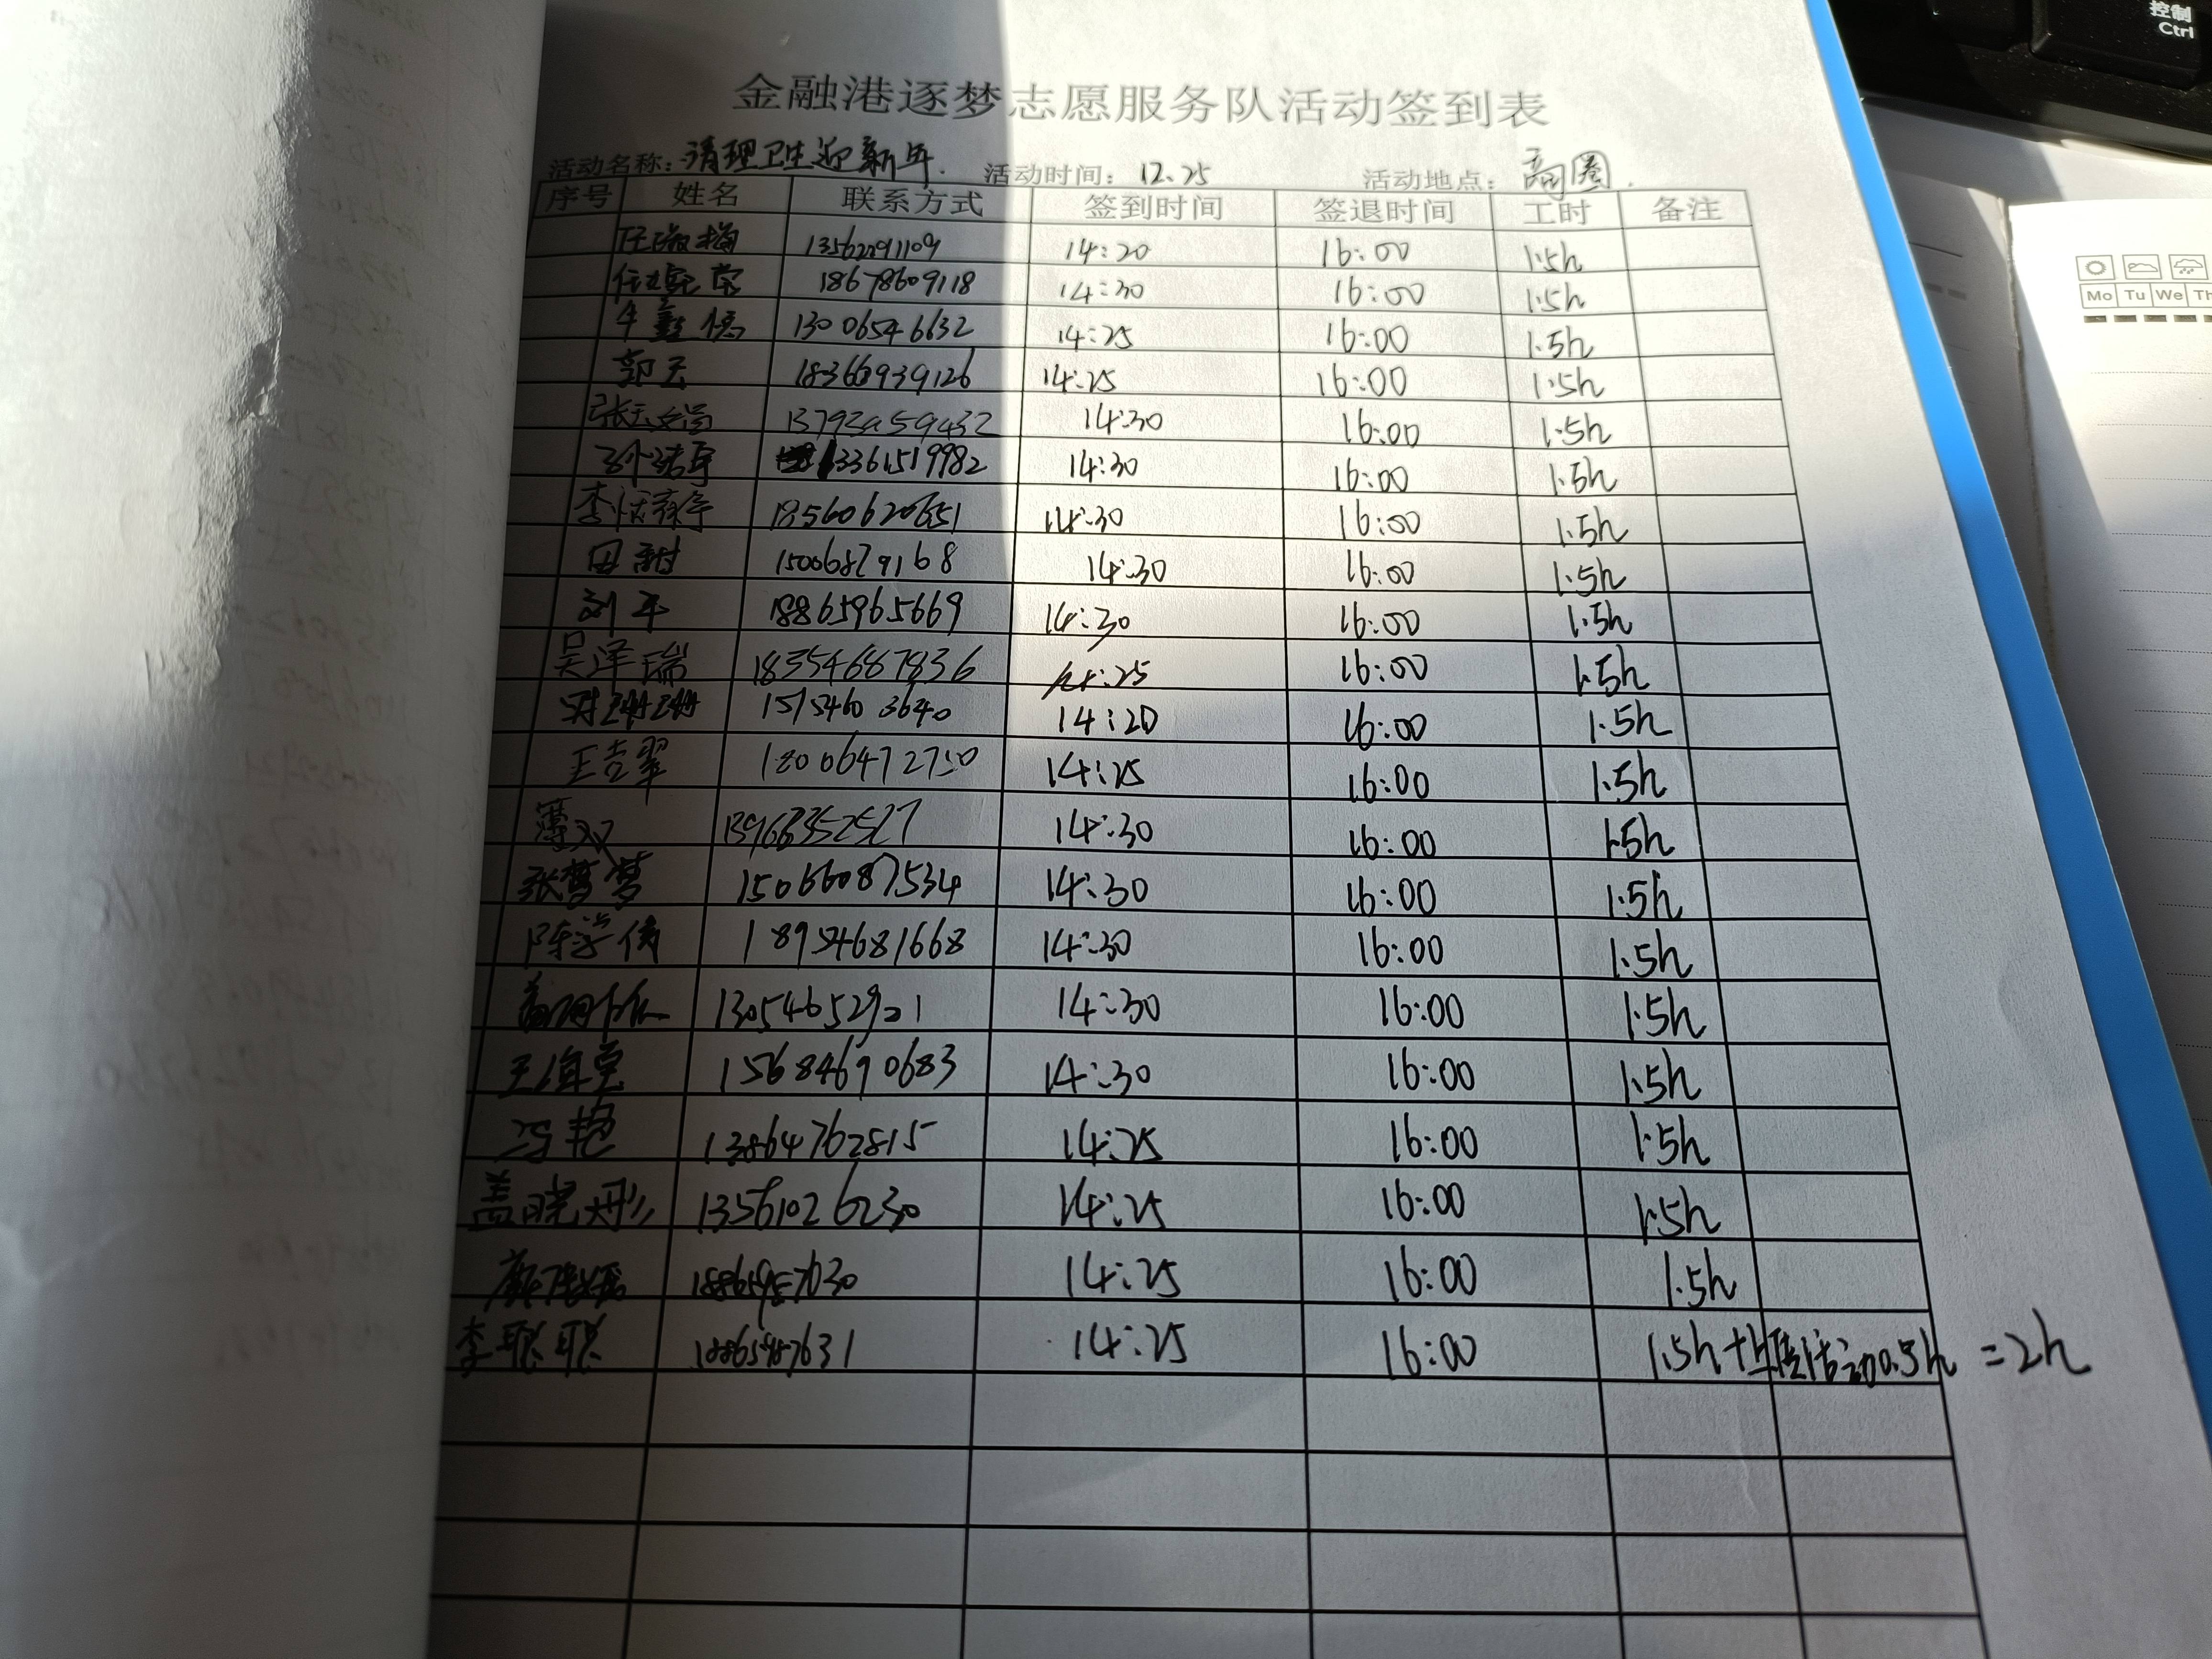 控制
Ctrl
金融港逐梦志愿服务队活动签到表
活动名称：清理卫生迎新年. 活动时间：12.25 活动地点：商圈.
序号 姓名 联系方式 签到时间 签退时间 工时 备注
任淑梅 13562091109 14:20 16:00 1.5h
18678609118 14:30 16:00 1.5h
13006546632 14:25 16:00 1.5h
郭云 18366939126 14:25 16:00 1.5h
14:30 16:00 1.5h
13361519982 14:30 16:00 1.5h
18560620651 14:30 16:00 1.5h
田甜 15006829168 14:30 16:00 1.5h
刘平 18865965669 14:30 16:00 1.5h
吴泽瑞 18354687836 14:25 16:00 1.5h
15154603640 14:20 16:00 1.5h
王吉翠 18006472750 14:25 16:00 1.5h
薄双 14:30 16:00 1.5h
张梦梦 15066087534 14:30 16:00 1.5h
陈学伟 18954681668 14:30 16:00 1.5h
13054652921 14:30 16:00 1.5h
15684690683 14:30 16:00 1.5h
冯艳 13864762815 14:25 16:00 1.5h
盖晓彤 13561026230 14:25 16:00 1.5h
18865957630 14:25 16:00 1.5h
李聪聪 18865987631 14:25 16:00 1.5h+上一活动0.5h =2h
Mo Tu We Th